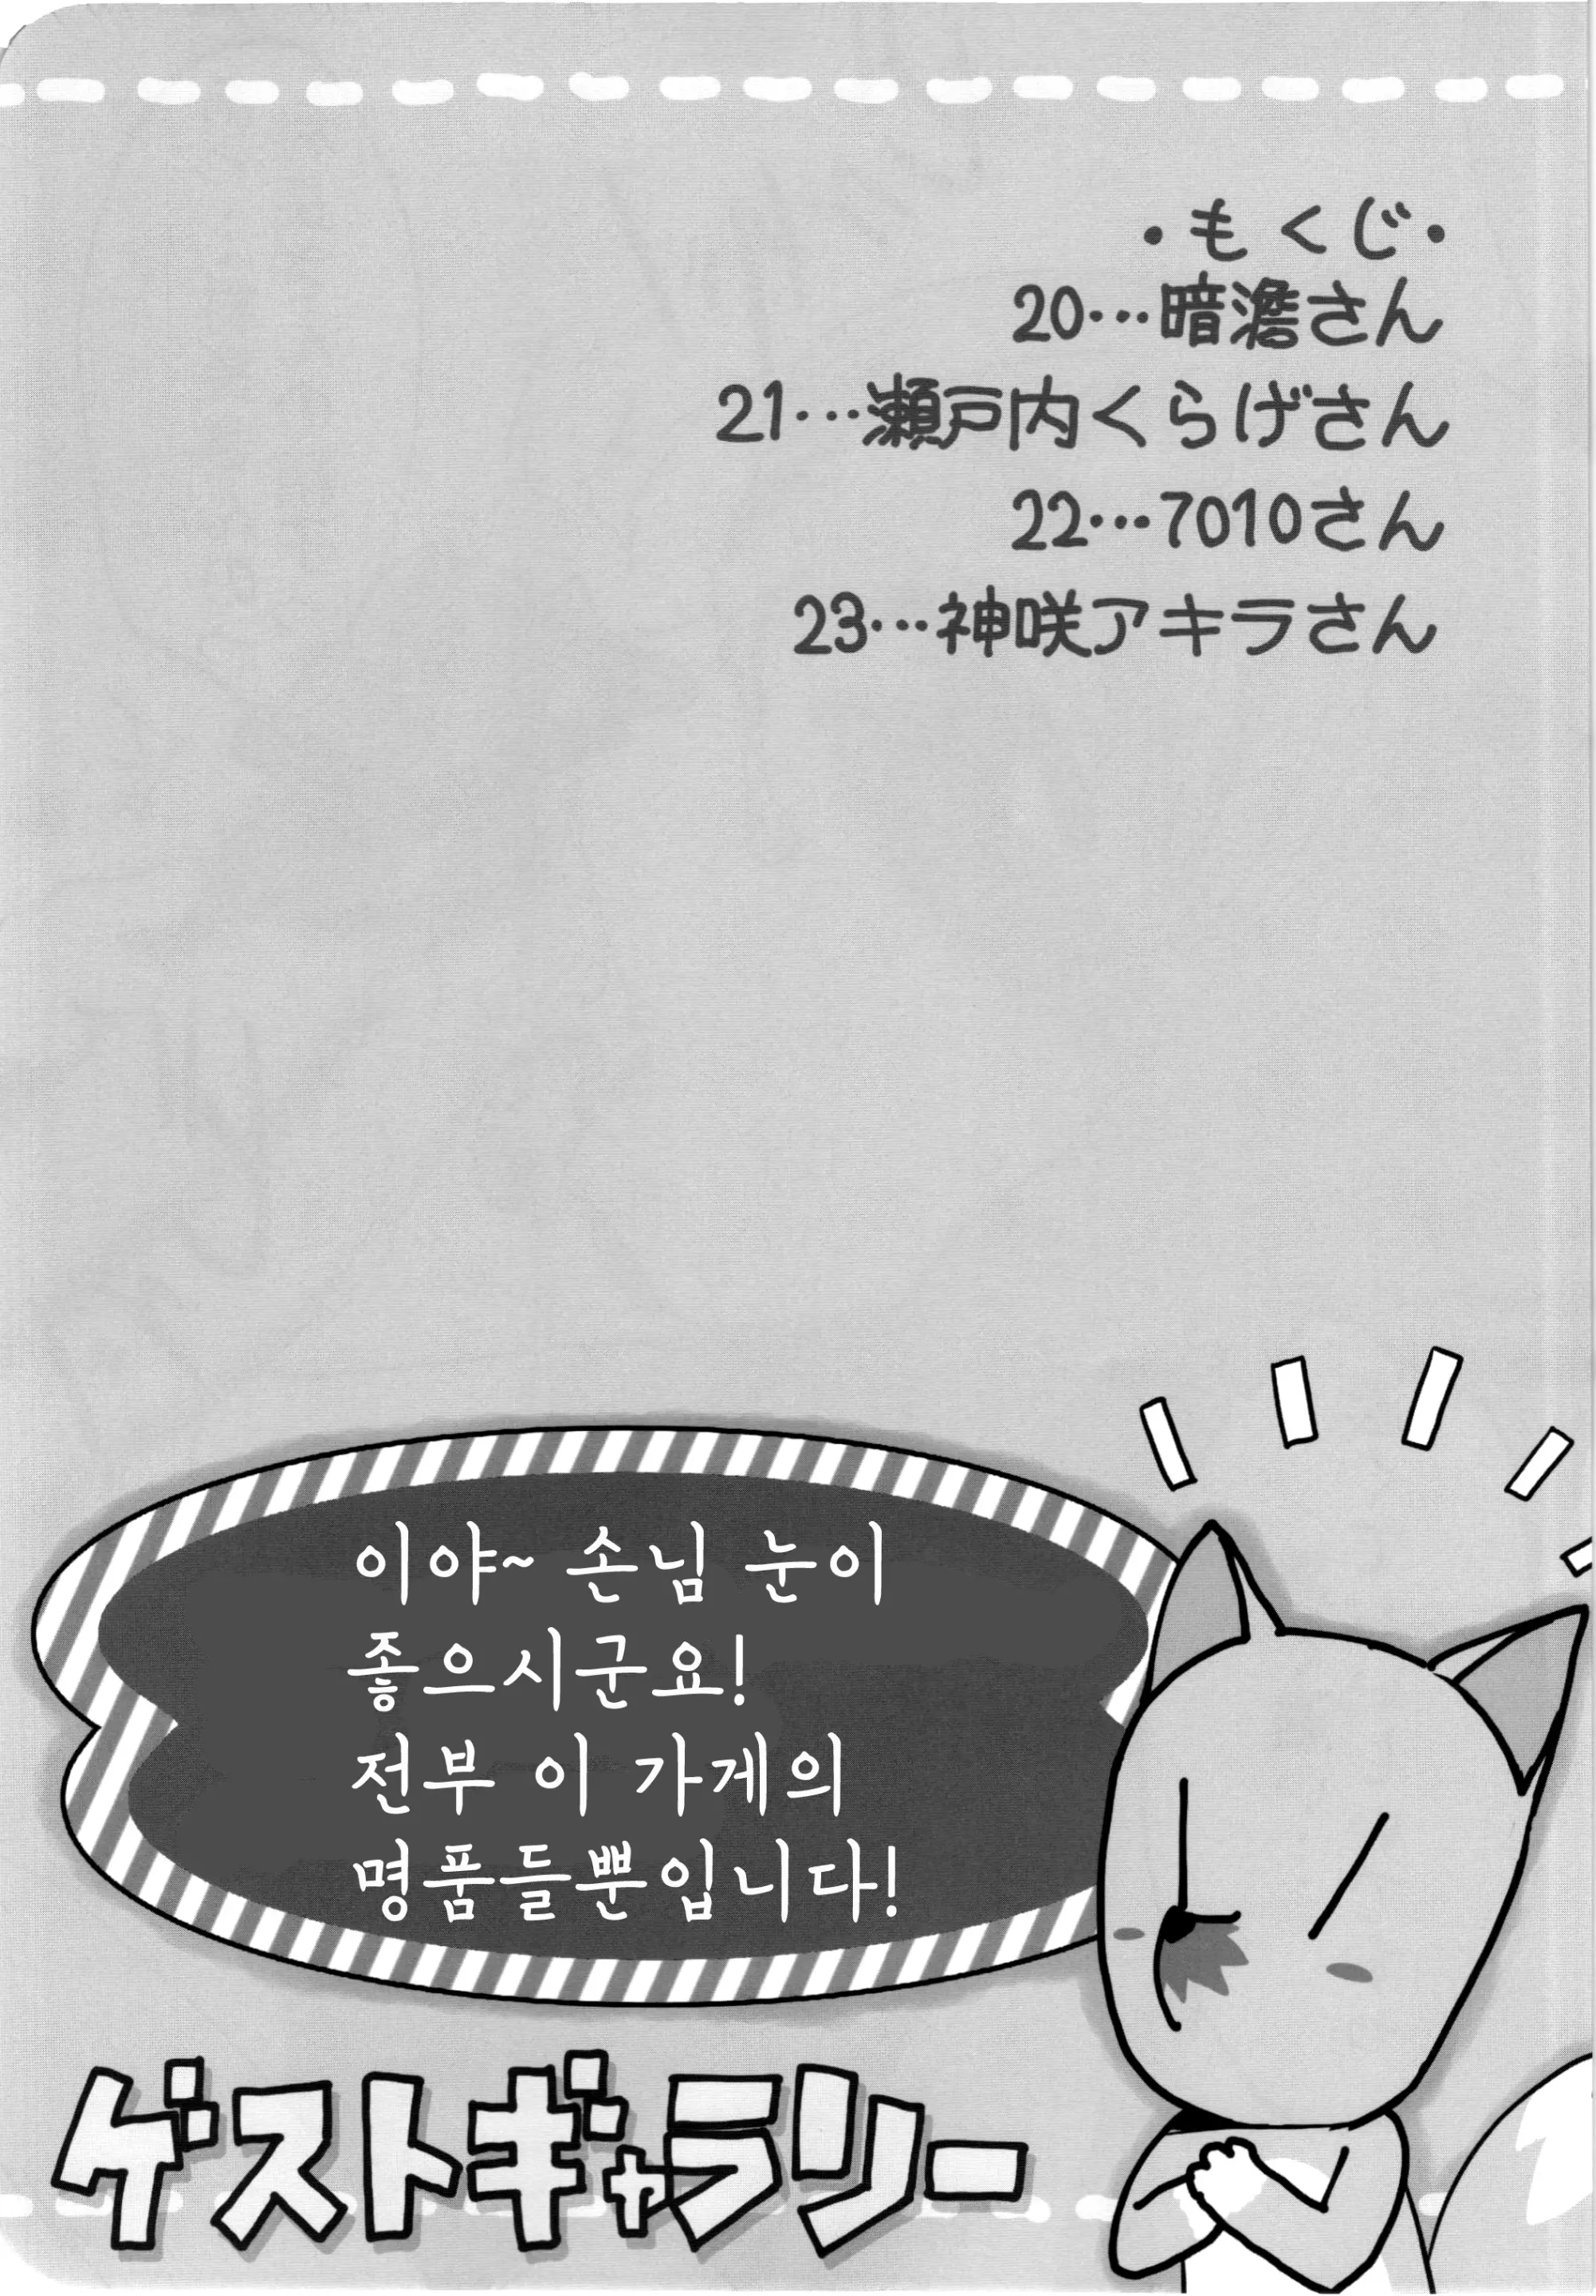 ・もくじ・
20…暗澹さん
21…瀬戸内くらげさん
22…7010さん
23…神咲アキラさん
이야~ 손님 눈이
좋으시군요!
전부 이 가게의
명품들뿐입니다!
ゲストギャラリー